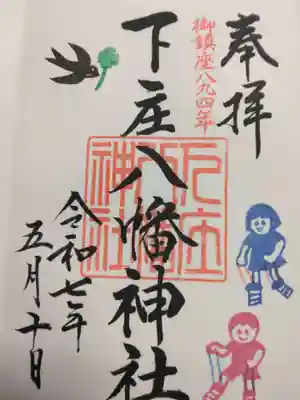 奉拝
御鎮座八九四年
下庄八幡神社
下庄八幡神社
令和七年
五月十日